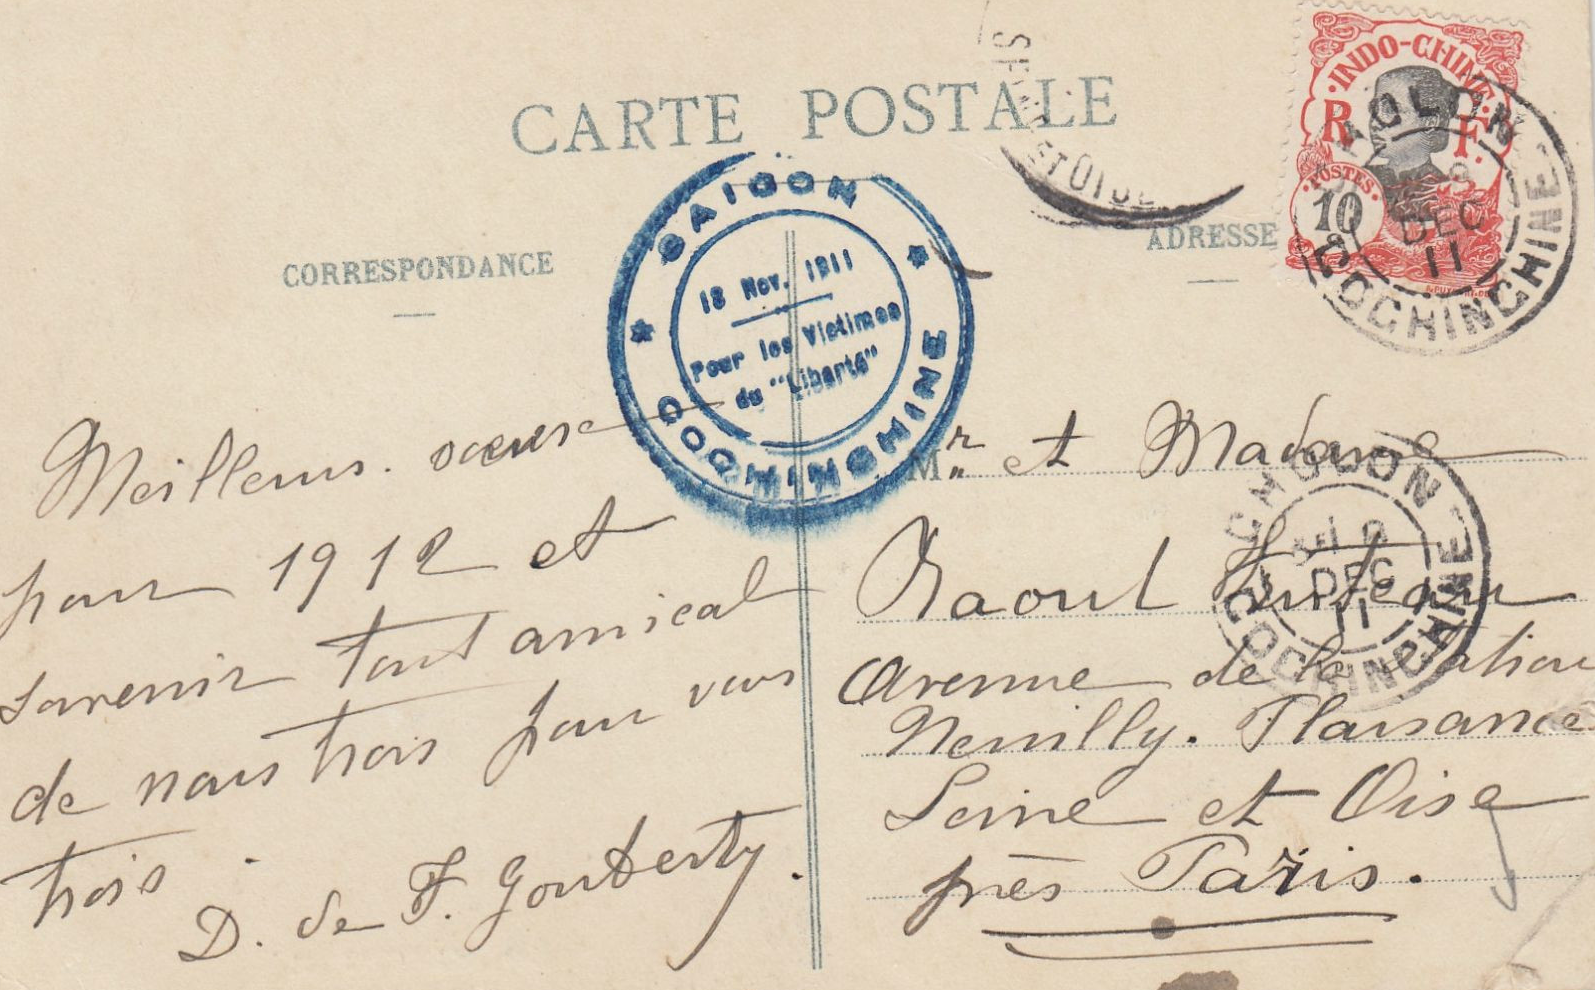 CARTE POSTALE
CORRESPONDANCE
ADRESSE
INDO-CHINE
R F
POSTES
10
CHOLON
DEC
11
COCHINCHINE
SEINE ET OISE
SAIGON
18 Nov. 1911
Pour les Victimes
du "Liberté"
COCHINCHINE
Meilleurs voeux
pour 1912 et
souvenir tout amical
de nous trois pour vous
trois.
D. de F. Gouberty.
Mr et Madame
Raoul
Avenue de la Station
Neuilly. Plaisance
Seine et Oise
près Paris.
CHOLON
DEC
11
COCHINCHINE